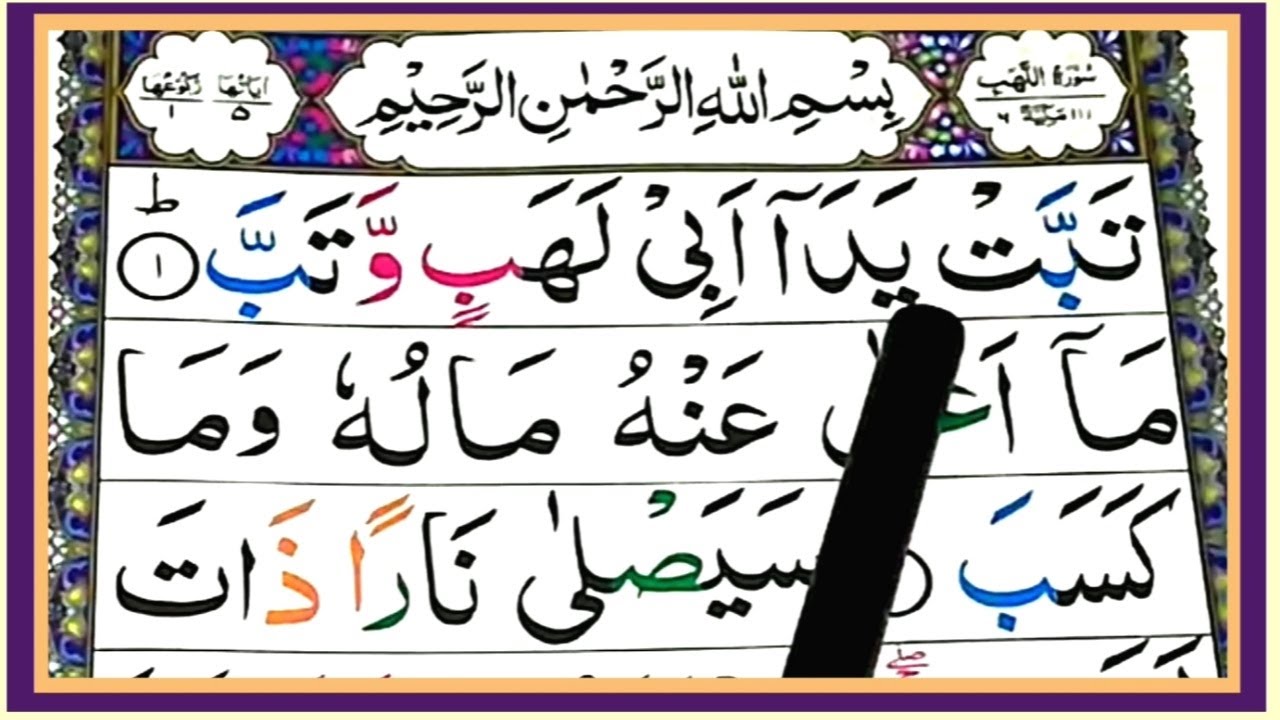 سُوْرَةُ اللَّهَبِ
١١١ مَكِّيَّةٌ ٦
بِسْمِ اللّٰهِ الرَّحْمٰنِ الرَّحِيْمِ
اٰيَاتُهَا ٥ رُكُوْعُهَا ١
تَبَّتْ يَدَآ اَبِيْ لَهَبٍ وَّتَبَّ ؕ ١
مَآ اَغْ عَنْهُ مَالُهٗ وَمَا
كَسَبَ سَيَصْلٰى نَارًا ذَاتَ